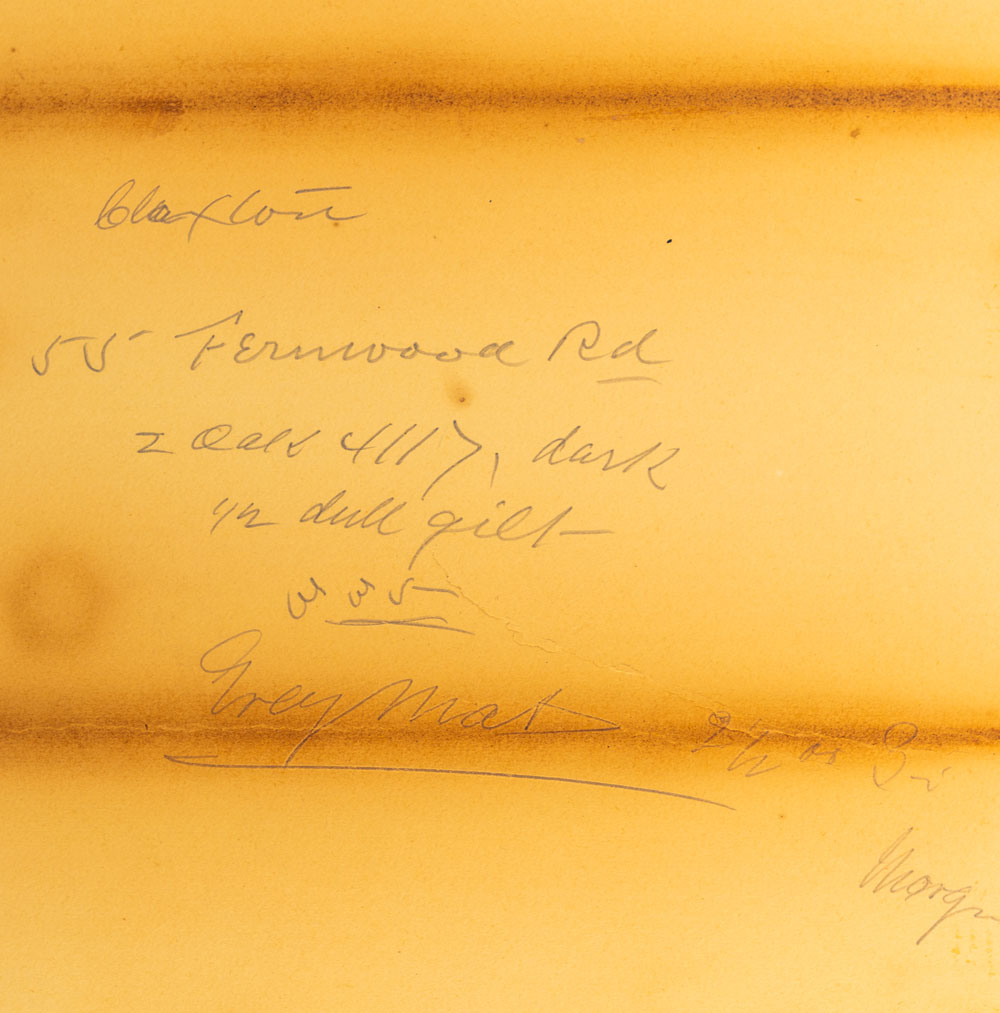 Claxton
55 Fernwood Rd
2 Oaks 4117, dark
1/2 dull gilt
335
Grey Mat
2 1/2 or 3